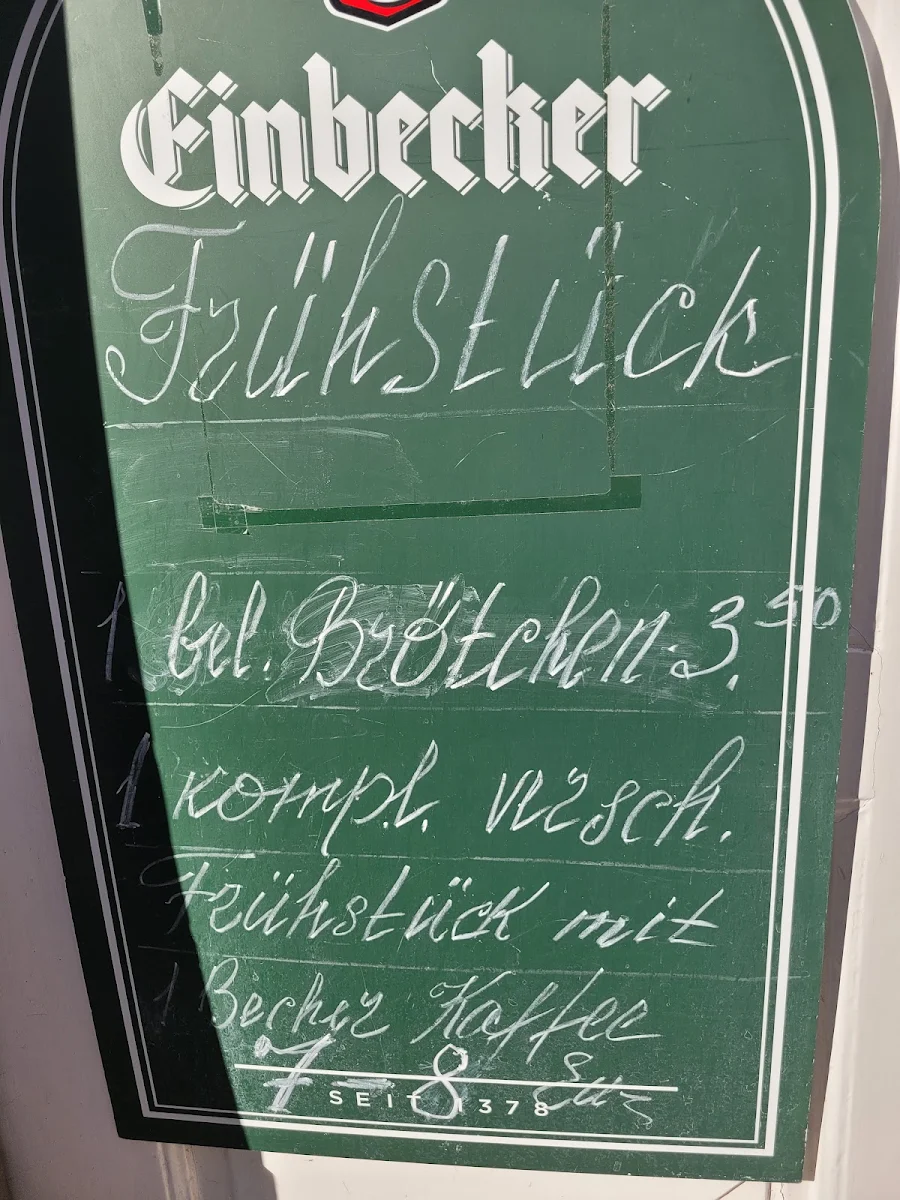 Einbecker
Frühstück
1 bel. Brötchen: 3,50
1 kompl. versch.
Frühstück mit
1 Becher Kaffee
7 - 8 Eur
SEIT 1378